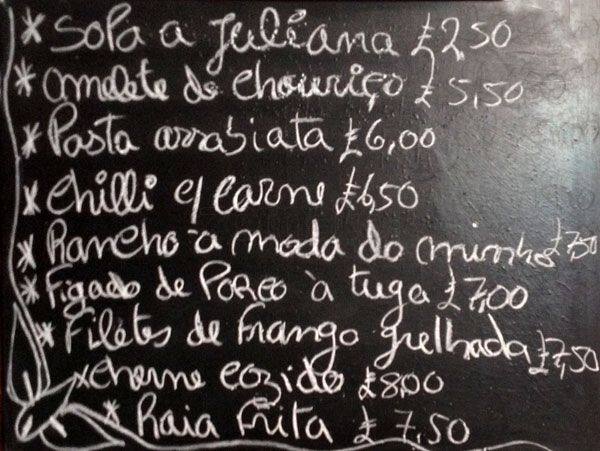 * Sopa a Juliana £2,50
* omelete de chouriço £5,50
* Pasta arrabiata £6,00
* Chilli c/ carne £6,50
* Rancho-a moda do minho £7,50
* Figado de Porco à tuga £7,00
* Filétes de frango grelhada £7,50
x cherne cozido £8,00
* Raia frita £7,50